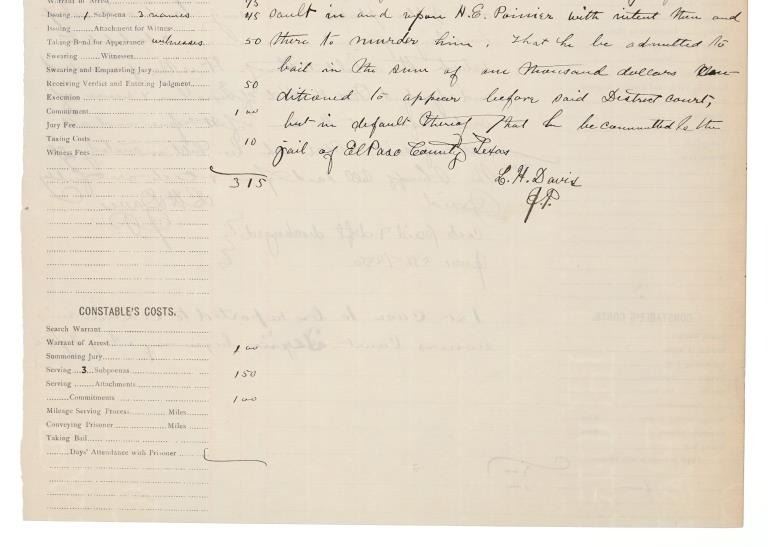 Warrant of Arrest 75
Issuing 1 Subpoena 3 names 75 sault in and upon H.E. Poinier with intent then and
Issuing Attachment for Witness
Taking Bond for Appearance witnesses 50 there to murder him. That he be admitted to
Swearing Witnesses
Swearing and Empanling Jury bail in the sum of one thousand dollars con
Receiving Verdict and Entering Judgment 50
Execution ditioned to appear before said District court,
Commitment 1 00
Jury Fee but in default thereof That he be committed to the
Taxing Costs 10
Witness Fees jail of El Paso County Texas
3 15 L. H. Davis
J.P.
CONSTABLE'S COSTS.
Search Warrant
Warrant of Arrest 1 00
Summoning Jury
Serving 3 Subpoenas 1 50
Serving Attachments
Commitments 1 00
Mileage Serving Process Miles
Conveying Prisoner Miles
Taking Bail
Days' Attendance with Prisoner